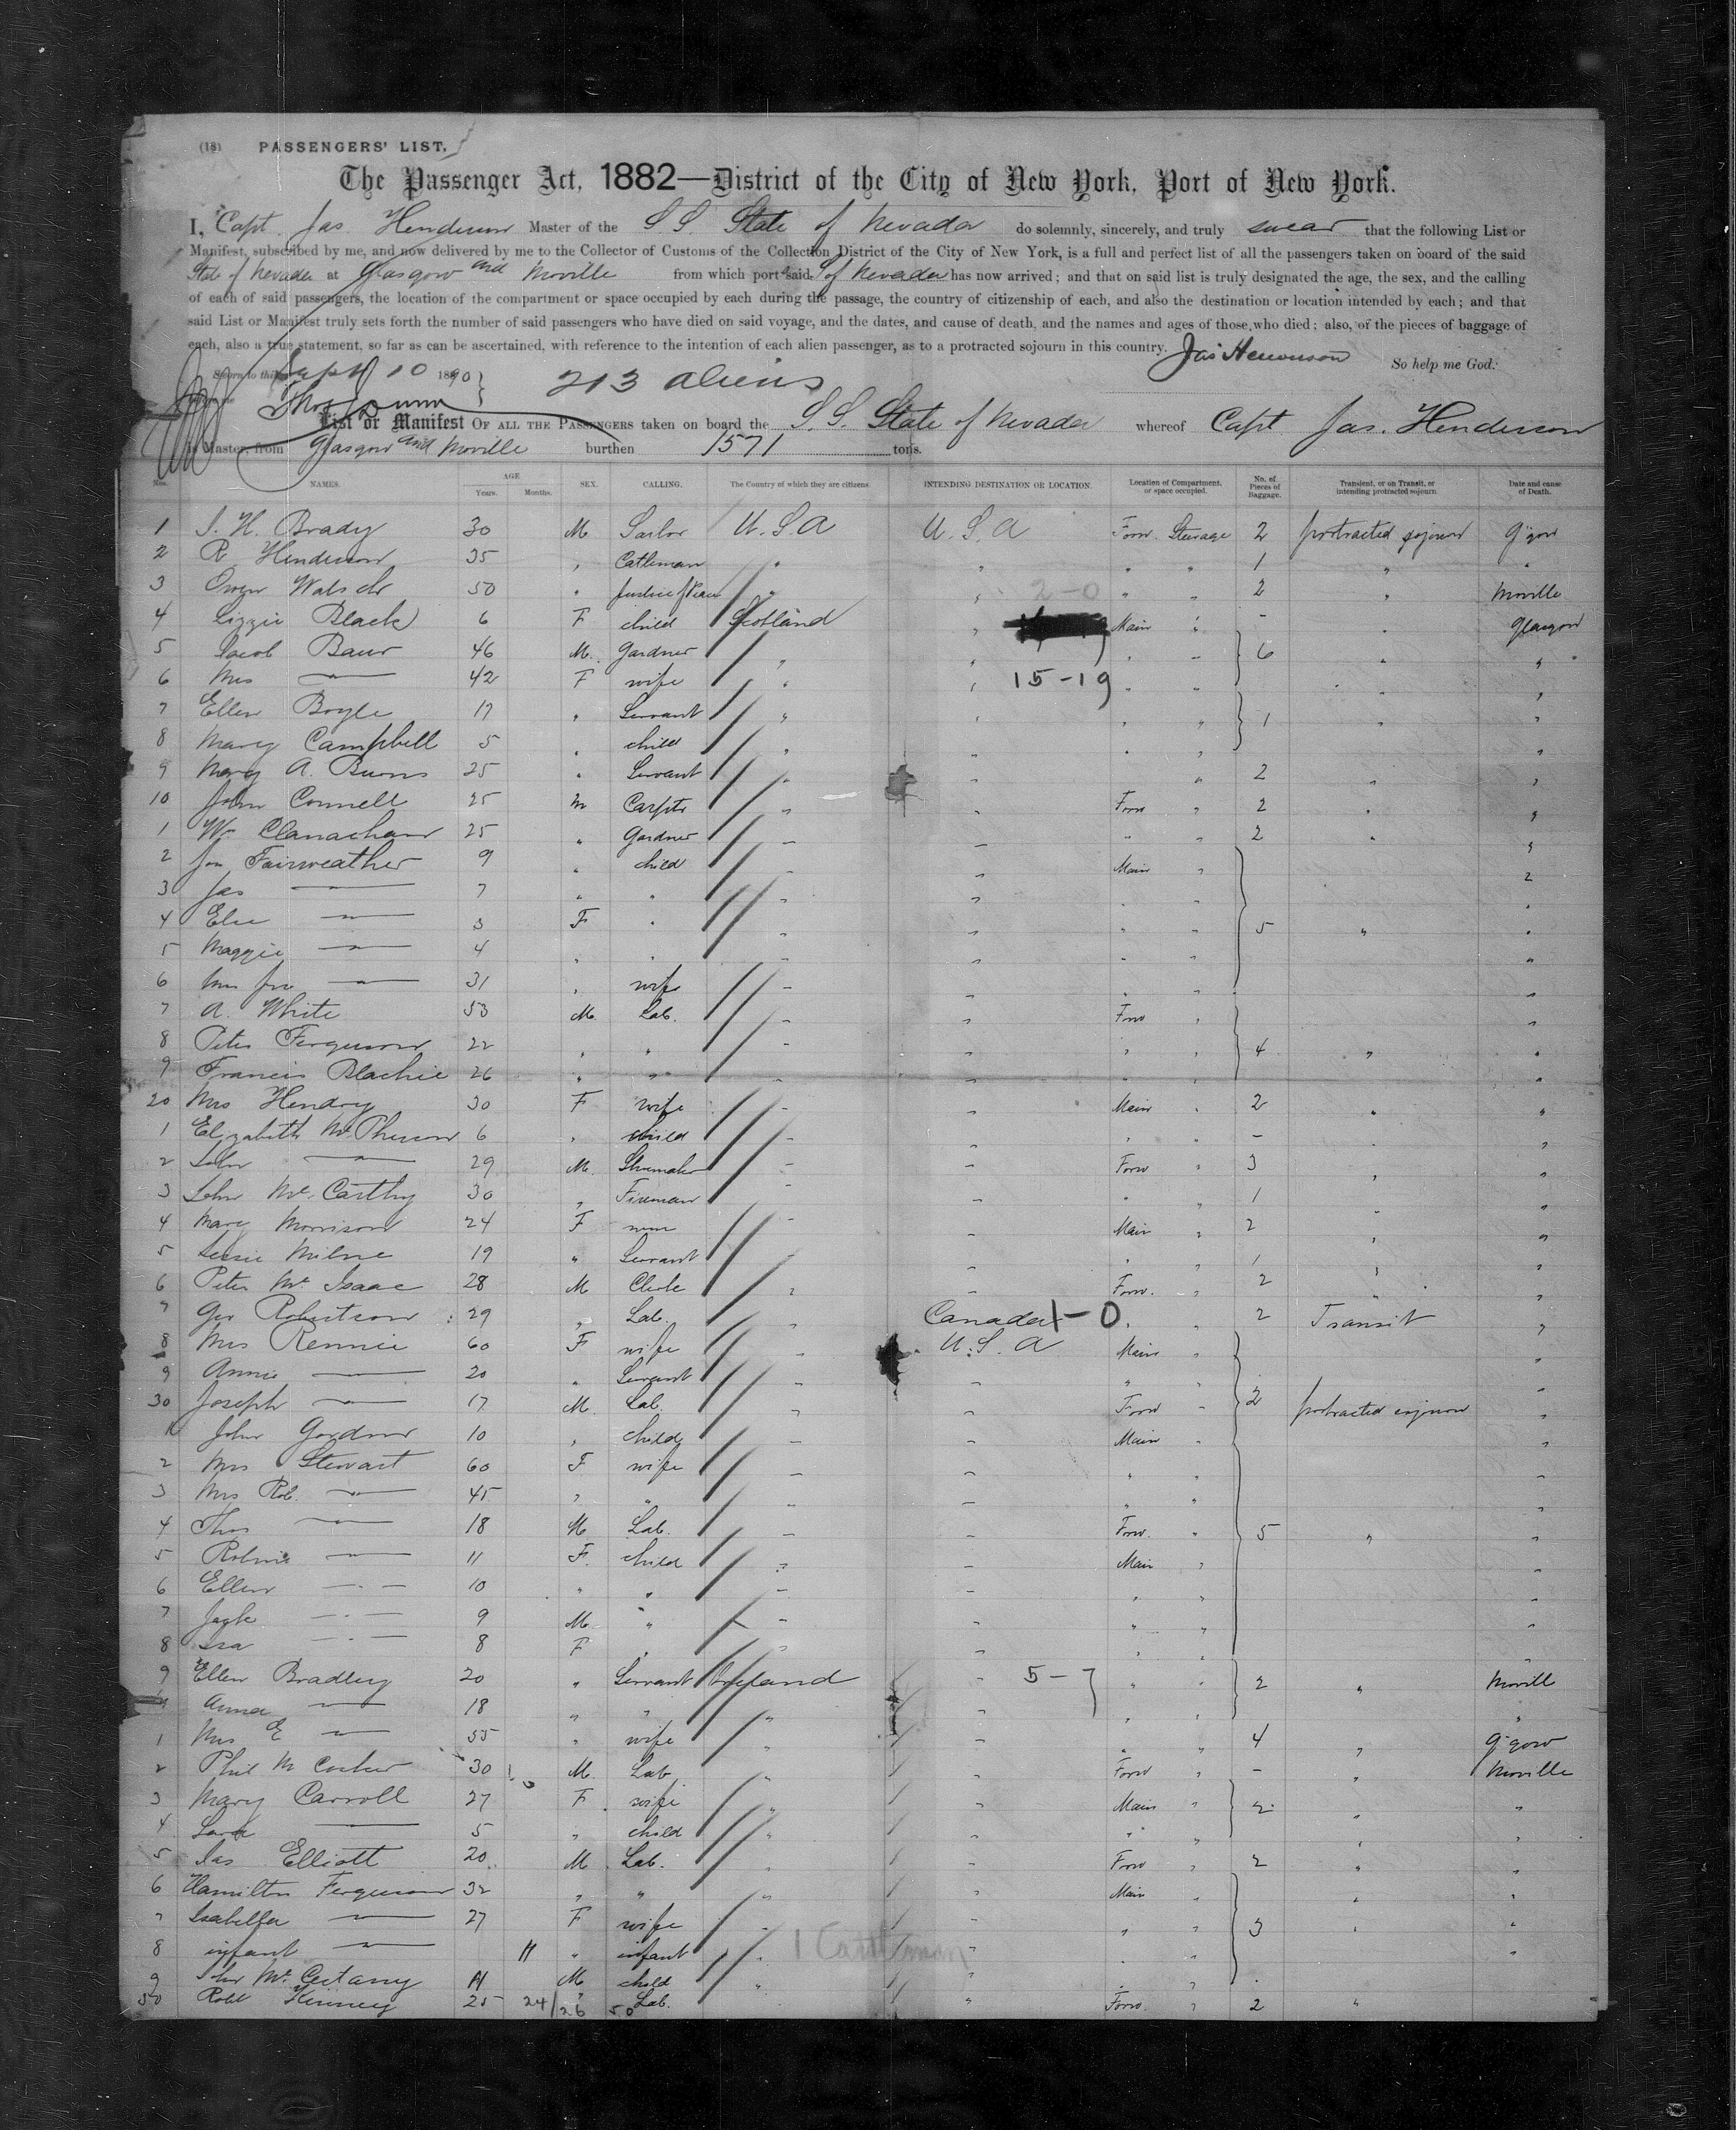 (18) PASSENGERS' LIST.
The Passenger Act, 1882—District of the City of New York, Port of New York.
I, Capt. Jas. Henderson Master of the S.S. State of Nevada do solemnly, sincerely, and truly swear that the following List or
Manifest, subscribed by me, and now delivered by me to the Collector of Customs of the Collection District of the City of New York, is a full and perfect list of all the passengers taken on board of the said
State of Nevada at Glasgow and Moville from which port said S of Nevada has now arrived; and that on said list is truly designated the age, the sex, and the calling
of each of said passengers, the location of the compartment or space occupied by each during the passage, the country of citizenship of each, and also the destination or location intended by each; and that
said List or Manifest truly sets forth the number of said passengers who have died on said voyage, and the dates, and cause of death, and the names and ages of those who died; also, of the pieces of baggage of
each, also a true statement, so far as can be ascertained, with reference to the intention of each alien passenger, as to a protracted sojourn in this country.
Jas Henderson So help me God.
Sworn to this Sept 10 1890 213 aliens
List or Manifest OF ALL THE PASSENGERS taken on board the S.S. State of Nevada whereof Capt Jas. Henderson
is Master, from Glasgow and Moville burthen 1571 tons.
Nos. NAMES. AGE Years. Months. SEX. CALLING. The Country of which they are citizens. INTENDING DESTINATION OR LOCATION. Location of Compartment, or space occupied. No. of Pieces of Baggage. Transient, or on Transit, or intending protracted sojourn. Date and cause of Death.
1 J. H. Brady 30 M Sailor U.S.A U.S.A Forw. Steerage 2 protracted sojourn G'gow
2 R Henderson 35 " Cattleman " " " " 1 " "
3 Owen 50 " " " 2-0 " " 2 " Moville
4 Lizzie Black 6 F child Scotland " Main " - " Glasgow
5 Jacob Baur 46 M. Gardner " " " " 6 " "
6 Mrs — 42 F wife " " 15-19 " " " "
7 Ellen Boyle 17 " Servant " " " " 1 " "
8 Mary Campbell 5 " child " " " "
9 Mary A. Burns 25 " Servant " " " 2 " "
10 John Connell 25 M Carptr " " Forw " 2 " "
1 Wm Clanachan 25 " Gardner " " " " 2 " "
2 Jon Fairweather 9 " child " " Main " "
3 Jas — 7 " " " " " " "
4 Else — 3 F " " " " " 5 " "
5 Maggie — 4 " " " " " "
6 Mrs Jno — 31 " wife " " " " "
7 A. White 53 M. Lab. " " Forw " "
8 Peter Ferguson 22 " " " " " " 4 " "
9 Francis Blachie 26 " " " " " " "
20 Mrs Hendry 30 F wife " " Main " 2 " "
1 Elizabeth McPherson 6 " child " " " " - " "
2 John — 29 M. Shumaker " " Forw " 3 " "
3 John McCarthy 30 " Fireman " " " " 1 " "
4 Mary Morrison 24 F " Main " 2 " "
5 Milne 19 " Servant " " " 1 " "
6 Peter McIsaac 28 M Clerk " Forw. " 2 " "
7 Geo Robertson 29 " Lab. " Canada 1-0 " " 2 Transit "
8 Mrs Rennie 60 F wife " U.S.A Main " "
9 Annie — 20 " Servant " " " " "
30 Joseph — 17 M. Lab. " " Forw " 2 protracted sojourn "
1 John Gordon 10 " child " " Main " "
2 Mrs Stewart 60 F wife " " " " "
3 Mrs Rob. — 45 " " " " " " "
4 Thos — 18 M. Lab. " " Forw. " 5 " "
5 — 11 F. child " " Main " "
6 Ellen — 10 " " " " " " "
7 Jack — 9 M. " " " " " "
8 Isa — 8 F " " " " "
9 Ellen Bradley 20 " Servant Ireland " 5-7 " " 2 " Moville
Anna — 18 " " " " " " "
1 Mrs E — 55 " wife " " " " 4 " G'gow
2 Phil 30 M. Lab " Forw " - " Moville
3 Mary Carroll 27 F. wife " " Main " 2 " "
4 — 5 " child " " " " " "
5 Jas Elliott 20 M. Lab. " " Forw " 2 " "
6 Hamilton Ferguson 32 " " " " Main " " "
7 Isabella — 27 F wife " " " " 3 " "
8 infant — 11 " infant " " " " "
9 John 11 M. child " " "
50 Robt Kinney 25 " Lab. " Forw. " 2 "
24/26 50
1 Cattleman